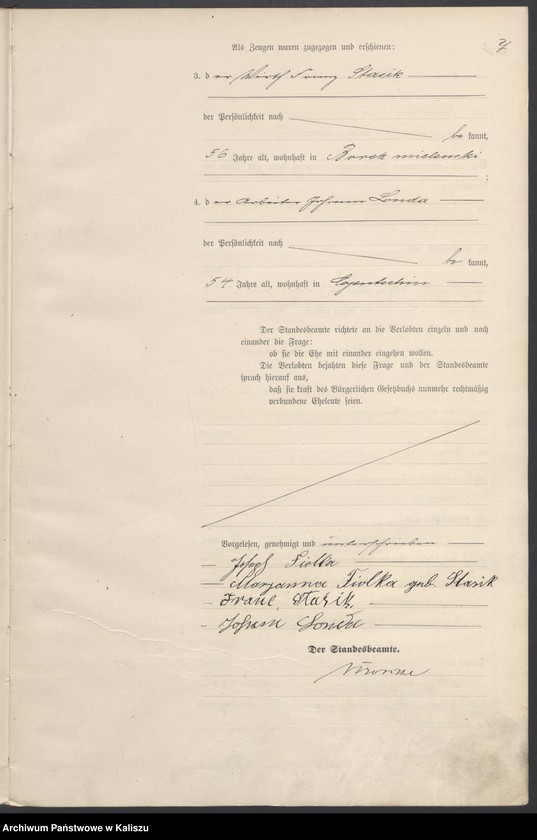 Als Zeugen waren zugezogen und erschienen:
3. der Wirth Franz Stasik
der Persönlichkeit nach
bekannt,
56 Jahre alt, wohnhaft in Borek mielenski
4. der Arbeiter Johann Londa
der Persönlichkeit nach
be kannt,
54 Jahre alt, wohnhaft in
Der Standesbeamte richtete an die Verlobten einzeln und nach
einander die Frage:
ob sie die Ehe mit einander eingehen wollen.
Die Verlobten bejahten diese Frage und der Standesbeamte
sprach hierauf aus,
daß sie kraft des Bürgerlichen Gesetzbuchs nunmehr rechtmäßig
verbundene Eheleute seien.
Vorgelesen, genehmigt und unterschrieben
Joseph Fiolka
Marjanna Fiolka geb. Stasik
Franc, Stasik,
Johann Londa
Der Standesbeamte.
Archiwum Państwowe w Kaliszu